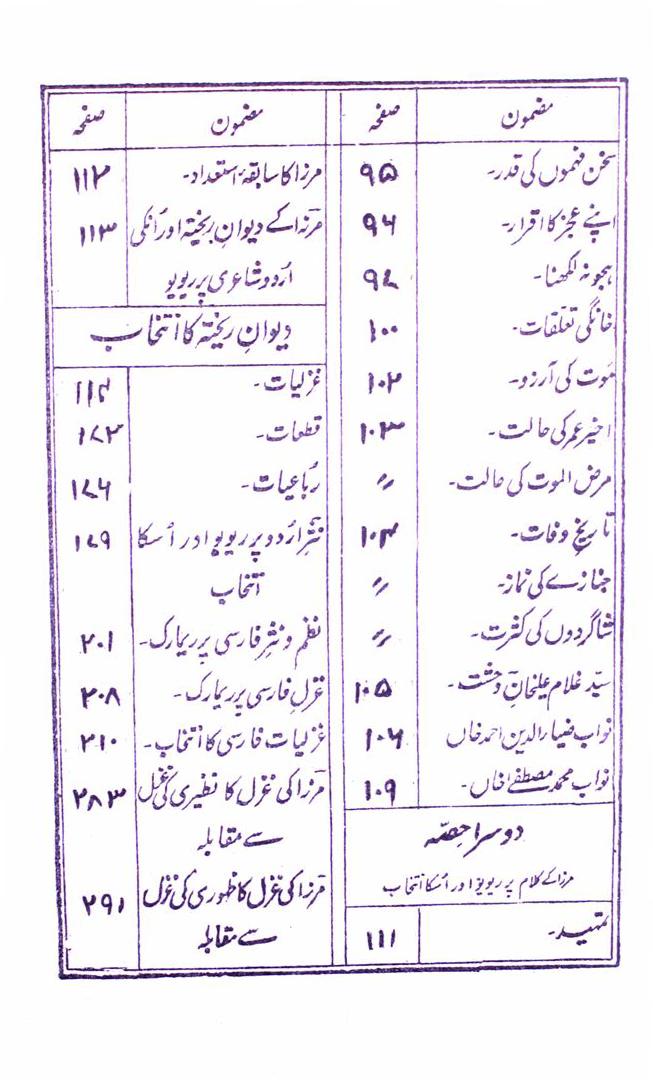 مضمون صفحہ
سخن فہموں کی قدر۔ ۹۵
اپنے عجز کا اقرار۔ ۹۶
ہجو نہ لکھنا۔ ۹۷
خانگی تعلقات۔ ۱۰۰
موت کی آرزو۔ ۱۰۲
اخیر عمر کی حالت۔ ۱۰۳
مرض الموت کی حالت۔ 〃
تاریخ وفات۔ ۱۰۴
جنازے کی نماز۔ 〃
شاگردوں کی کثرت۔ 〃
سیّد غلام علیخان وحشت۔ ۱۰۵
نواب ضیاء الدین احمد خاں ۱۰۶
نواب محمد مصطفےٰ خاں۔ ۱۰۹
دوسرا حصّہ
مرزا کے کلام پر ریویو اور اُسکا انتخاب
تمہید۔ ۱۱۱
مضمون صفحہ
مرزا کا سابقۂ استعداد۔ ۱۱۲
مرزا کے دیوانِ ریختہ اور اُنکی ۱۱۳
اُردو شاعری پر ریویو
دیوانِ ریختہ کا انتخاب
غزلیات۔ ۱۱۴
قطعات۔ ۱۷۳
رباعیات۔ ۱۷۶
نثرِ اُردو پر ریویو اور اُسکا ۱۷۹
انتخاب
نظم و نثرِ فارسی پر ریمارک۔ ۲۰۱
غزلِ فارسی پر ریمارک۔ ۲۰۸
غزلیات فارسی کا انتخاب۔ ۲۱۰
مرزا کی غزل کا نظیری کی غزل ۲۸۳
سے مقابلہ
مرزا کی غزل کا ظہوری کی غزل ۲۹۱
سے مقابلہ